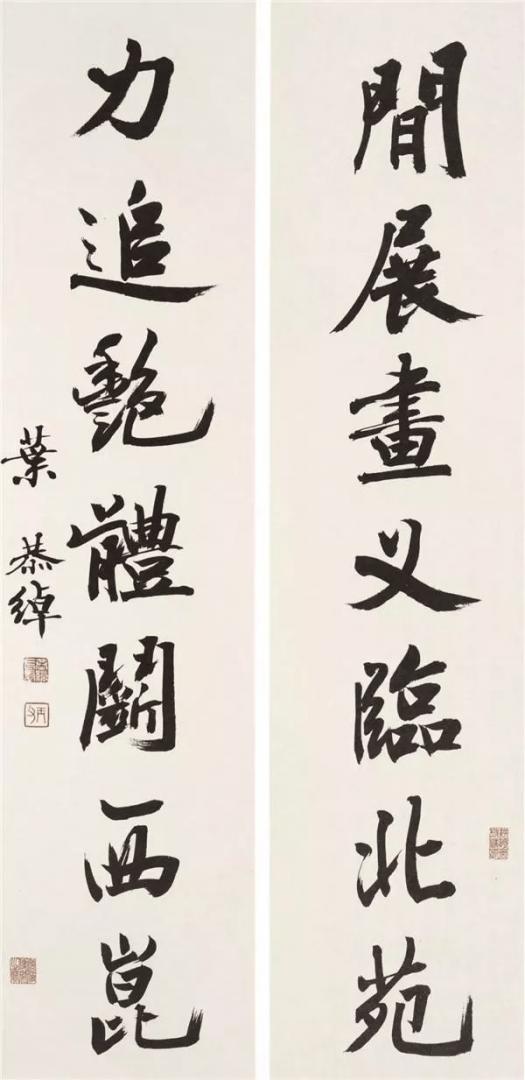 間展畫叉臨北苑
力追艷體鬬西崑
葉恭綽